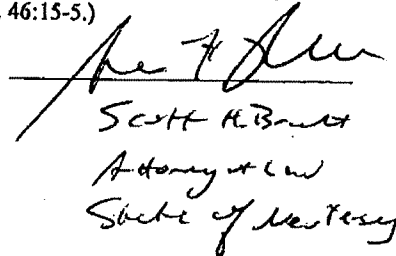 46:15-5.)
Scott H.
Attorney at Law
State of New Jersey